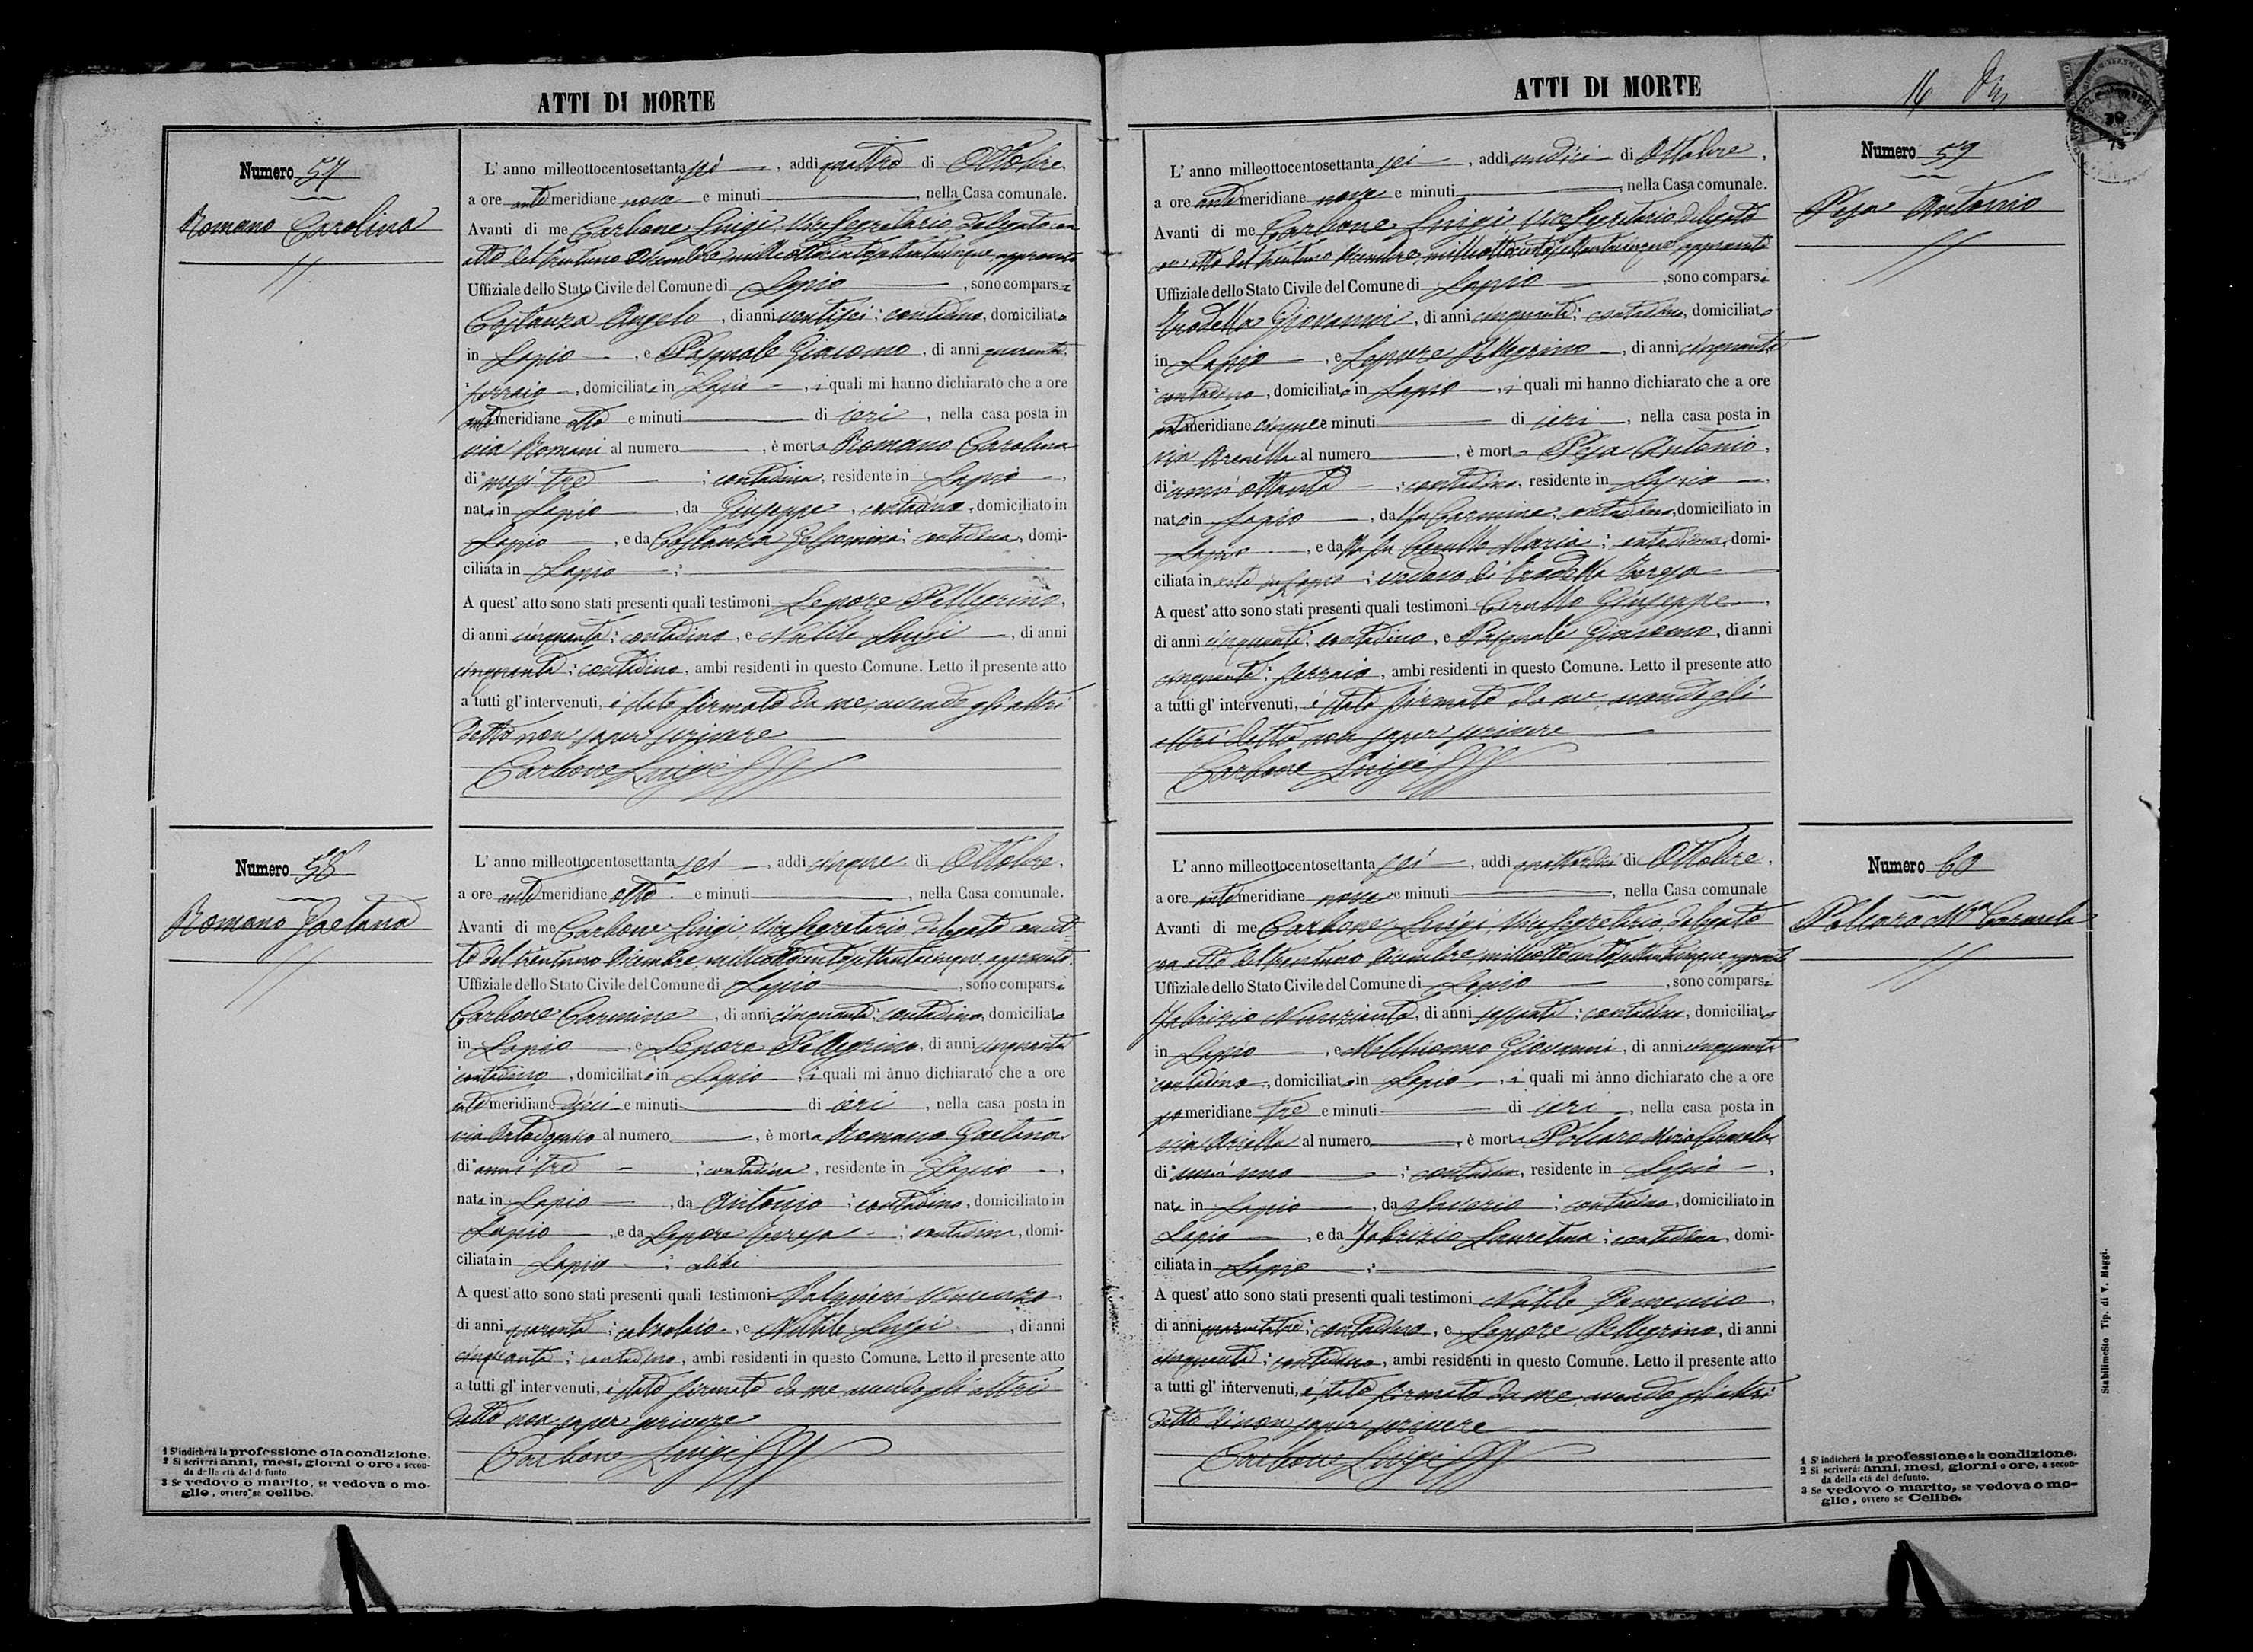 ATTI DI MORTE
Numero 57
Romano Carolina
L' anno milleottocentosettanta sei, addi quattro di Ottobre,
a ore antemeridiane nove e minuti, nella Casa comunale.
Avanti di me Carbone Luigi, Vice Segretario, delegato con
atto del trentuno Dicembre milleottocentosettantacinque, approvato
Uffiziale dello Stato Civile del Comune di Lapio, sono comparsi
Costanza Angelo, di anni ventisei; contadino, domiciliato
in Lapio, e Pasquale Giacomo, di anni quaranta,
ferraio, domiciliato in Lapio, i quali mi hanno dichiarato che a ore
antemeridiane otto e minuti di ieri, nella casa posta in
via Romani al numero, è morta Romano Carolina
di mesi tre; contadina, residente in Lapio,
nata in Lapio, da Giuseppe, contadino, domiciliato in
Lapio, e da Costanza Gelsomina; contadina, domi-
ciliata in Lapio;
A quest' atto sono stati presenti quali testimoni Lepore Pellegrino,
di anni cinquanta; contadino, e Nutile Luigi, di anni
cinquanta; contadino, ambi residenti in questo Comune. Letto il presente atto
a tutti gl' intervenuti, è stato firmato da me, avendo gli altri
detto non saper scrivere
Carbone Luigi
Numero 58
Romano Gaetana
L' anno milleottocentosettanta sei, addi cinque di Ottobre,
a ore antemeridiane otto e minuti, nella Casa comunale.
Avanti di me Carbone Luigi, Vice Segretario delegato con at-
to del trentuno Dicembre, milleottocentosettantacinque, approvato
Uffiziale dello Stato Civile del Comune di Lapio, sono comparsi
Carbone Carmine, di anni cinquanta; contadino, domiciliato
in Lapio, e Lepore Pellegrino, di anni cinquanta
contadino, domiciliato in Lapio, i quali mi ànno dichiarato che a ore
antemeridiane dieci e minuti di ieri, nella casa posta in
via al numero, è morta Romano Gaetana
di anni tre; contadina, residente in Lapio,
nata in Lapio, da Antonio; contadino, domiciliato in
Lapio, e da Lepore Teresa; contadina, domi-
ciliata in Lapio;
A quest' atto sono stati presenti quali testimoni Vincenzo,
di anni quaranta; calzolaio, e Nutile Luigi, di anni
cinquanta; contadino, ambi residenti in questo Comune. Letto il presente atto
a tutti gl' intervenuti, è stato firmato da me avendo gli altri
detto non saper scrivere
Carbone Luigi
1 S' indicherà la professione o la condizione.
2 Si scriverà anni, mesi, giorni o ore a secon-
da della età del defunto.
3 Se vedovo o marito, se vedova o mo-
glie, ovvero se celibe.
ATTI DI MORTE
16
Numero 59
Pesa Antonio
L' anno milleottocentosettanta sei, addi undici di Ottobre,
a ore antemeridiane nove e minuti, nella Casa comunale.
Avanti di me Carbone Luigi, Vice Segretario, delegato
con atto del trentuno Dicembre, milleottocentosettantacinque approvato
Uffiziale dello Stato Civile del Comune di Lapio, sono comparsi
Trodella Giovanni, di anni cinquanta; contadino, domiciliato
in Lapio, e Lepore Pellegrino, di anni cinquanta
contadino, domiciliato in Lapio, i quali mi hanno dichiarato che a ore
antemeridiane cinque e minuti di ieri, nella casa posta in
via Arenella al numero, è morto Pesa Antonio,
di anni ottanta; contadino, residente in Lapio,
nato in Lapio, da fu Carmine, contadino, domiciliato in
Lapio, e da fu Cerullo Maria; contadina, domi-
ciliata in Lapio; vedovo di Trodella Teresa
A quest' atto sono stati presenti quali testimoni Cerullo Giuseppe,
di anni cinquanta; contadino, e Pasquale Giacomo, di anni
cinquanta; ferraio, ambi residenti in questo Comune. Letto il presente atto
a tutti gl' intervenuti, è stato firmato da me, avendo gli
altri detto non saper scrivere
Carbone Luigi
Numero 60
Pollaro Mª Carmela
L' anno milleottocentosettanta sei, addi quattordici di Ottobre,
a ore antemeridiane nove e minuti, nella Casa comunale
Avanti di me Carbone Luigi, Vice Segretario, delegato
con atto del trentuno Dicembre, milleottocentosettantacinque, approvato
Uffiziale dello Stato Civile del Comune di Lapio, sono comparsi
Fabrizio Nunziante, di anni sessanta; contadino, domiciliato
in Lapio, e Melchionno Giovanni, di anni cinquanta
contadino, domiciliato in Lapio, i quali mi ànno dichiarato che a ore
pomeridiane tre e minuti di ieri, nella casa posta in
via al numero, è morta Pollaro Maria Carmela
di anni uno; contadina, residente in Lapio,
nata in Lapio, da Saverio; contadino, domiciliato in
Lapio, e da Fabrizio Lauretana; contadina, domi-
ciliata in Lapio;
A quest' atto sono stati presenti quali testimoni Nutile Domenico,
di anni; contadino, e Lepore Pellegrino, di anni
cinquanta; contadino, ambi residenti in questo Comune. Letto il presente atto
a tutti gl' intervenuti, è stato firmato da me, avendo gli altri
detto di non saper scrivere
Carbone Luigi
1 S' indicherà la professione o la condizione.
2 Si scriverà: anni, mesi, giorni o ore, a secon-
da della età del defunto.
3 Se vedovo o marito, se vedova o mo-
glie, ovvero se Celibe.
Stabilimesto Tip. di V. Maggi.